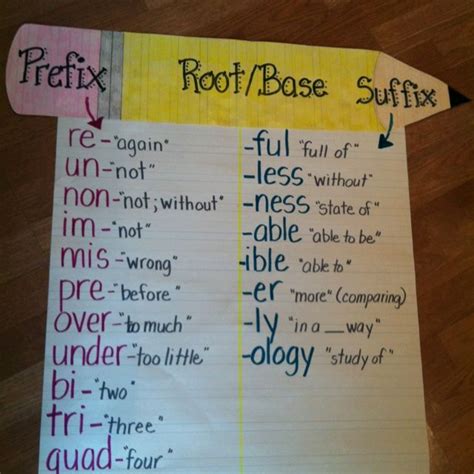 Prefix Root/Base Suffix
re-"again"
un-"not"
non-"not; without"
im-"not"
mis-"wrong"
pre-"before"
over-"to much"
under-"too little"
bi-"two"
tri-"three"
quad-"four"
-ful "full of"
-less "without"
-ness "state of"
-able "able to be"
-ible "able to"
-er "more" (comparing)
-ly "in a __ way"
-ology "study of"